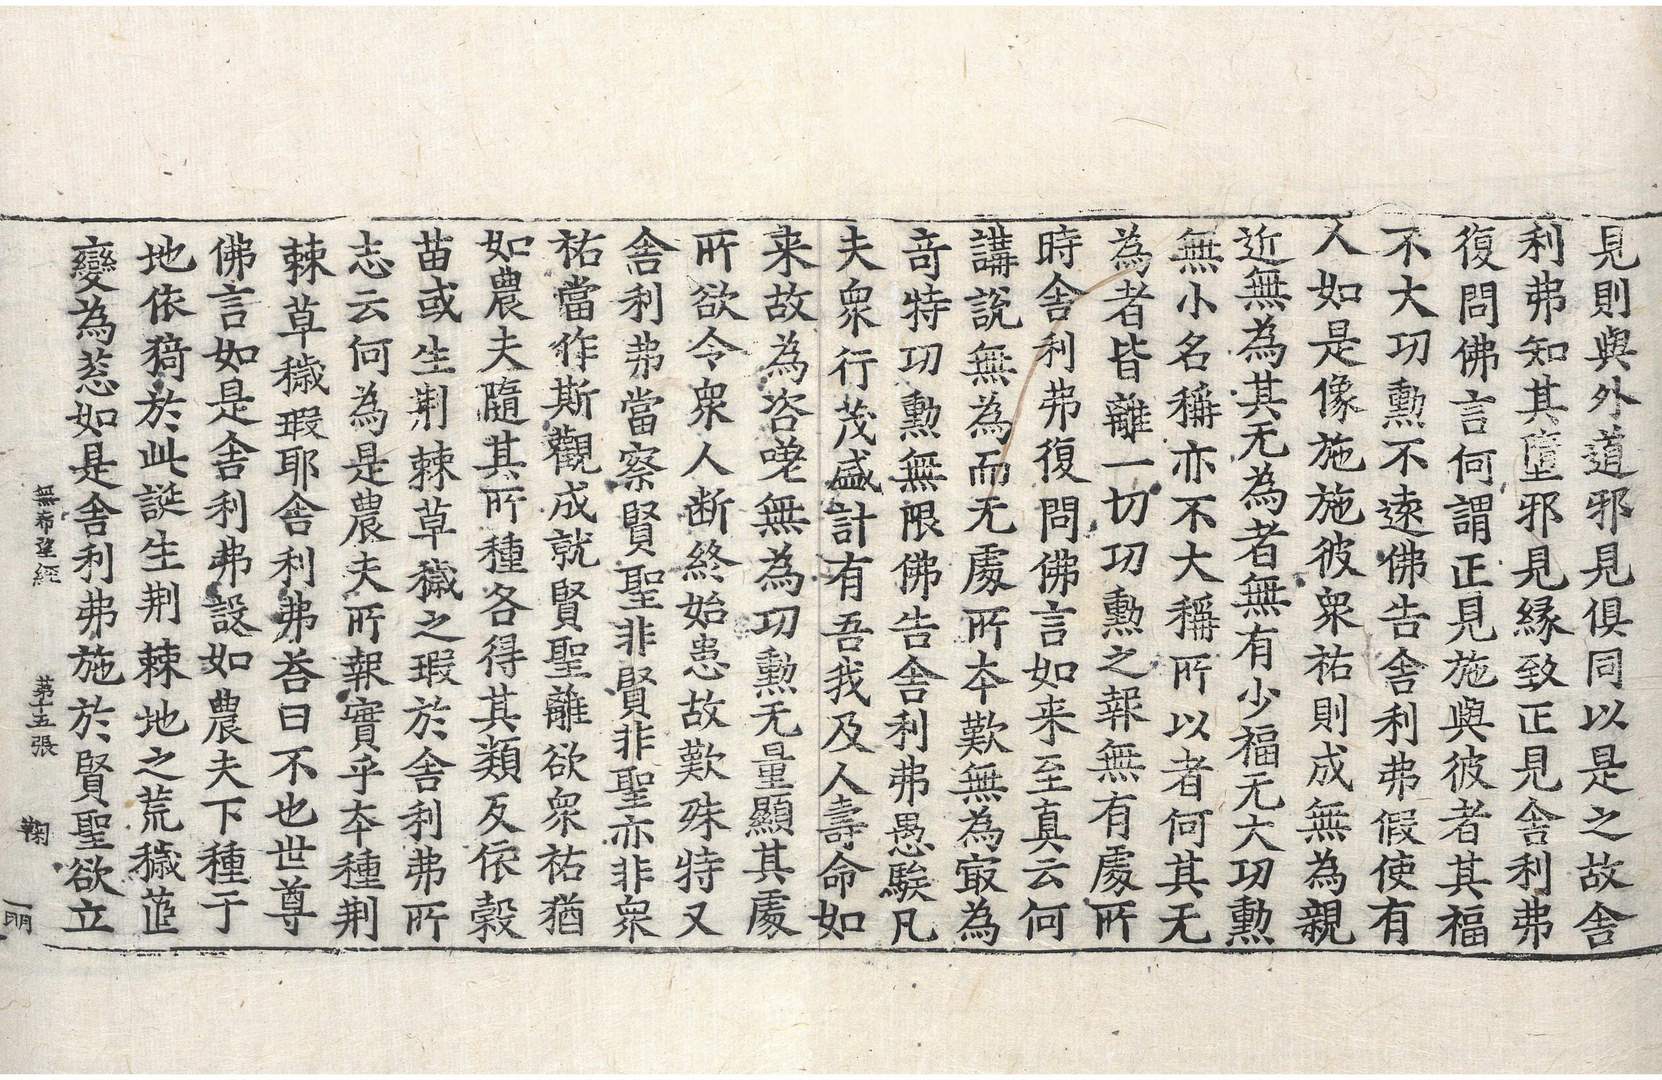 見則與外道邪見俱同以是之故舎
利弗知其墮邪見縁致正見舎利弗
復問佛言何謂正見施與彼者其福
不大功勲不遠佛告舎利弗假使有
人如是像施施彼衆祐則成無為親
近無為其无為者無有少福无大功勲
無小名稱亦不大稱所以者何其无
為者皆離一切功勲之報無有處所
時舎利弗復問佛言如来至真云何
講說無為而无處所夲歎無為㝡為
竒特功勲無限佛告舎利弗愚騃凡
夫衆行茂盛計有吾我及人壽命如
来故為咨嗟無為功勲无量顯其處
所欲令衆人断終始患故歎殊特又
舎利弗當察賢聖非賢非聖亦非衆
祐當作斯觀成就賢聖離欲衆祐猶
如農夫隨其所種各得其類反依榖
苗或生荆棘草穢之瑕於舎利弗所
志云何為是農夫所報實乎夲種荆
棘草穢瑕耶舎利弗荅曰不也世尊
佛言如是舎利弗設如農夫下種于
地依猗於此誕生荆棘地之荒穢葅
變為惡如是舎利弗施於賢聖欲立
無希望經 第十五張 鞠 一明